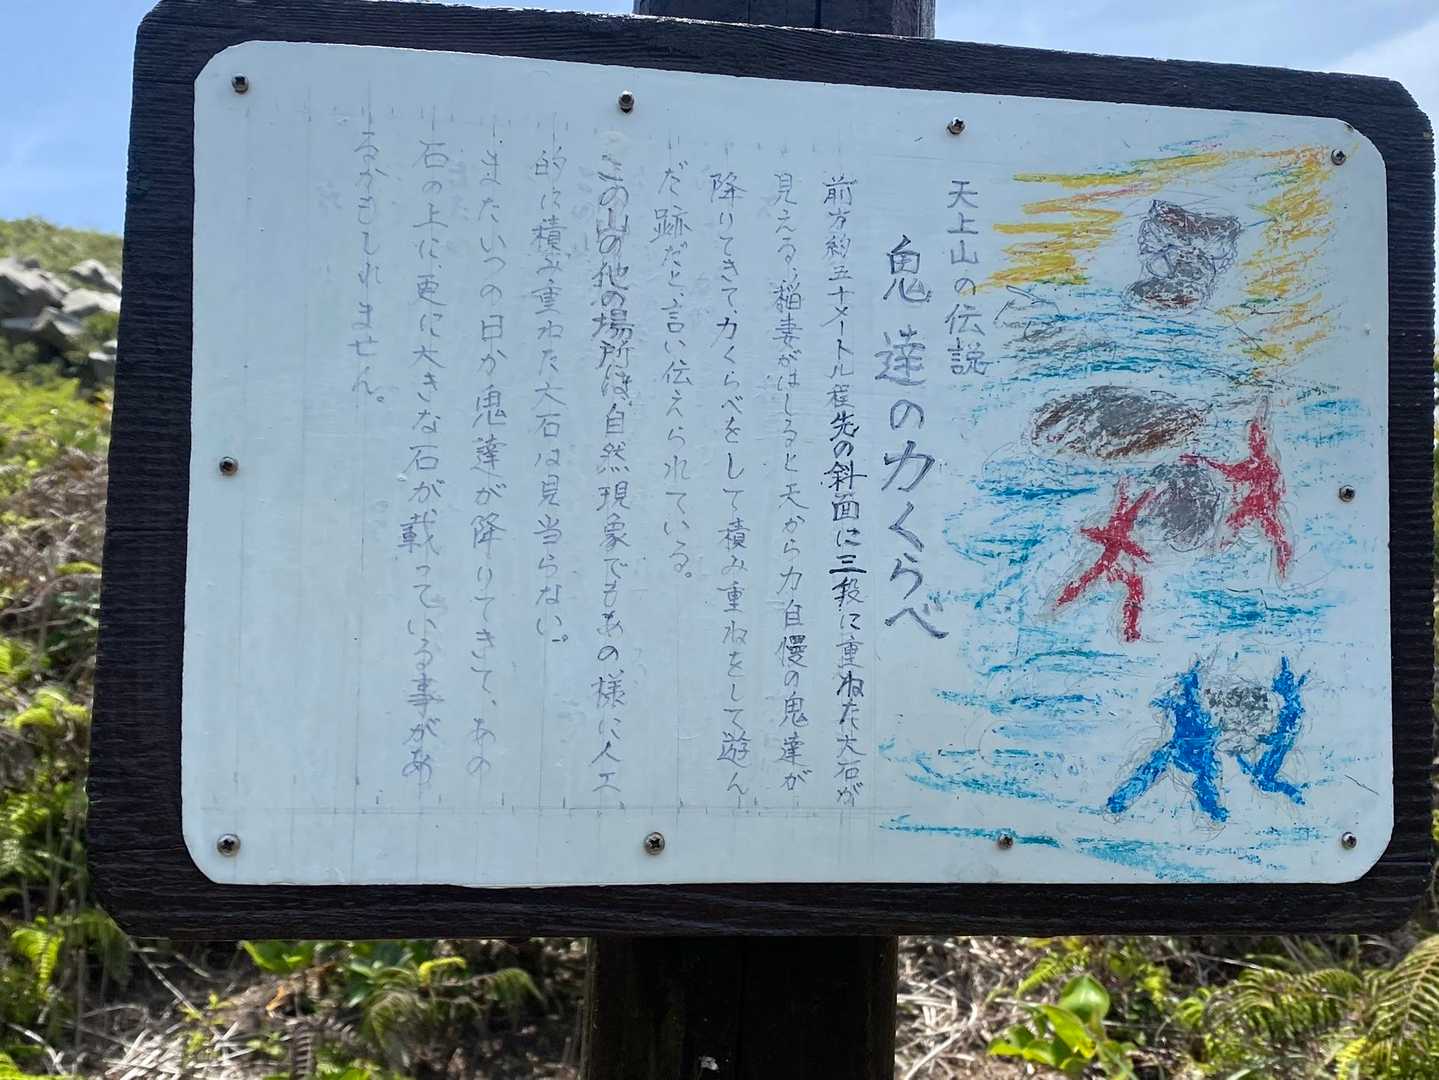 天上山の伝説
鬼達の力くらべ
前方約五十メートル程先の斜面に三段に重ねた大石が
見える、稲妻がはしると天から力自慢の鬼達が
降りてきて、力くらべをして積み重ねをして遊ん
だ跡だと言い伝えられている。
この山の他の場所は、自然現象でもあの様に人工
的に積み重ねた大石は見当らない。
またいつの日か鬼達が降りてきて、あの
石の上に、更に大きな石が載っている事があ
るかもしれません。